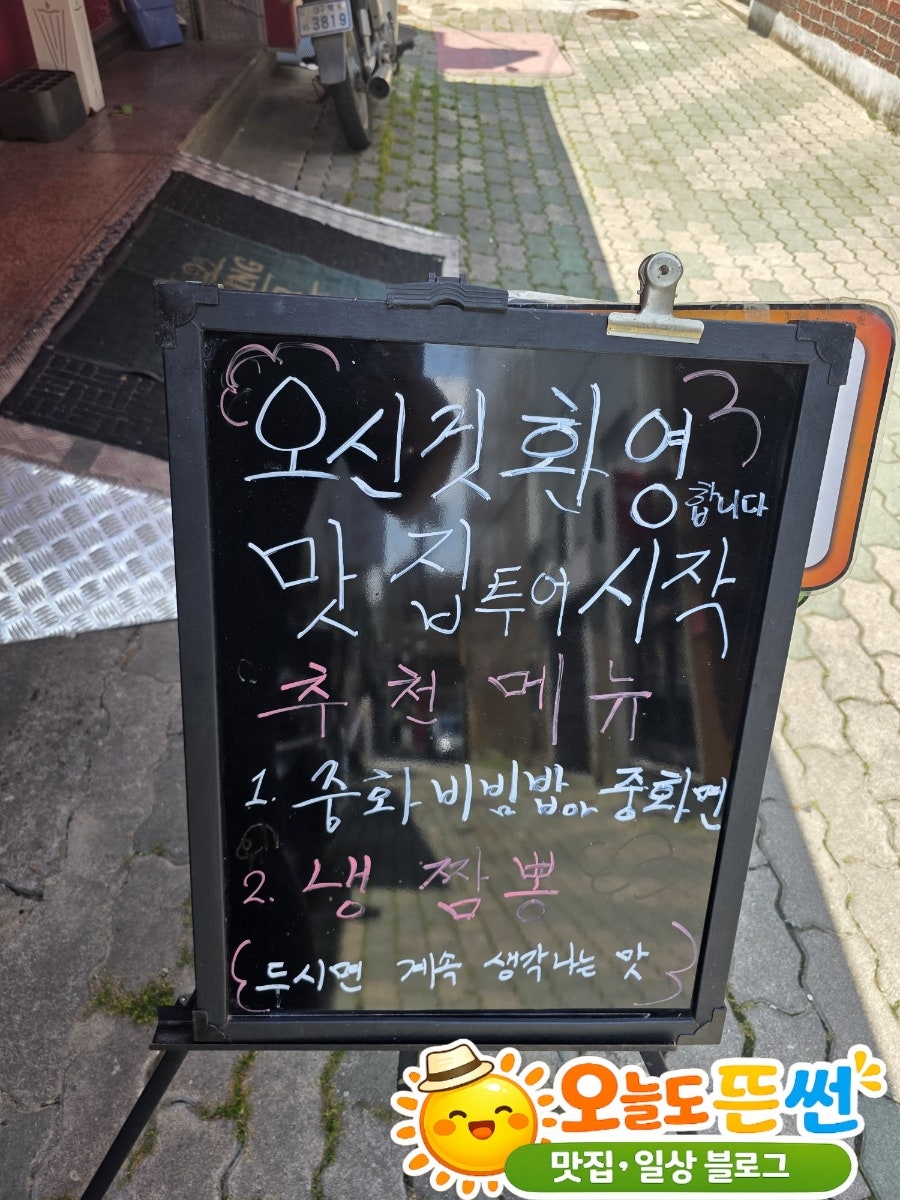 3819
오신것 환영합니다
맛집투어 시작
추천메뉴
1. 중화비빔밥, 중화면
2. 냉짬뽕
두시면 계속 생각나는 맛
오늘도뜬썬
맛집·일상 블로그